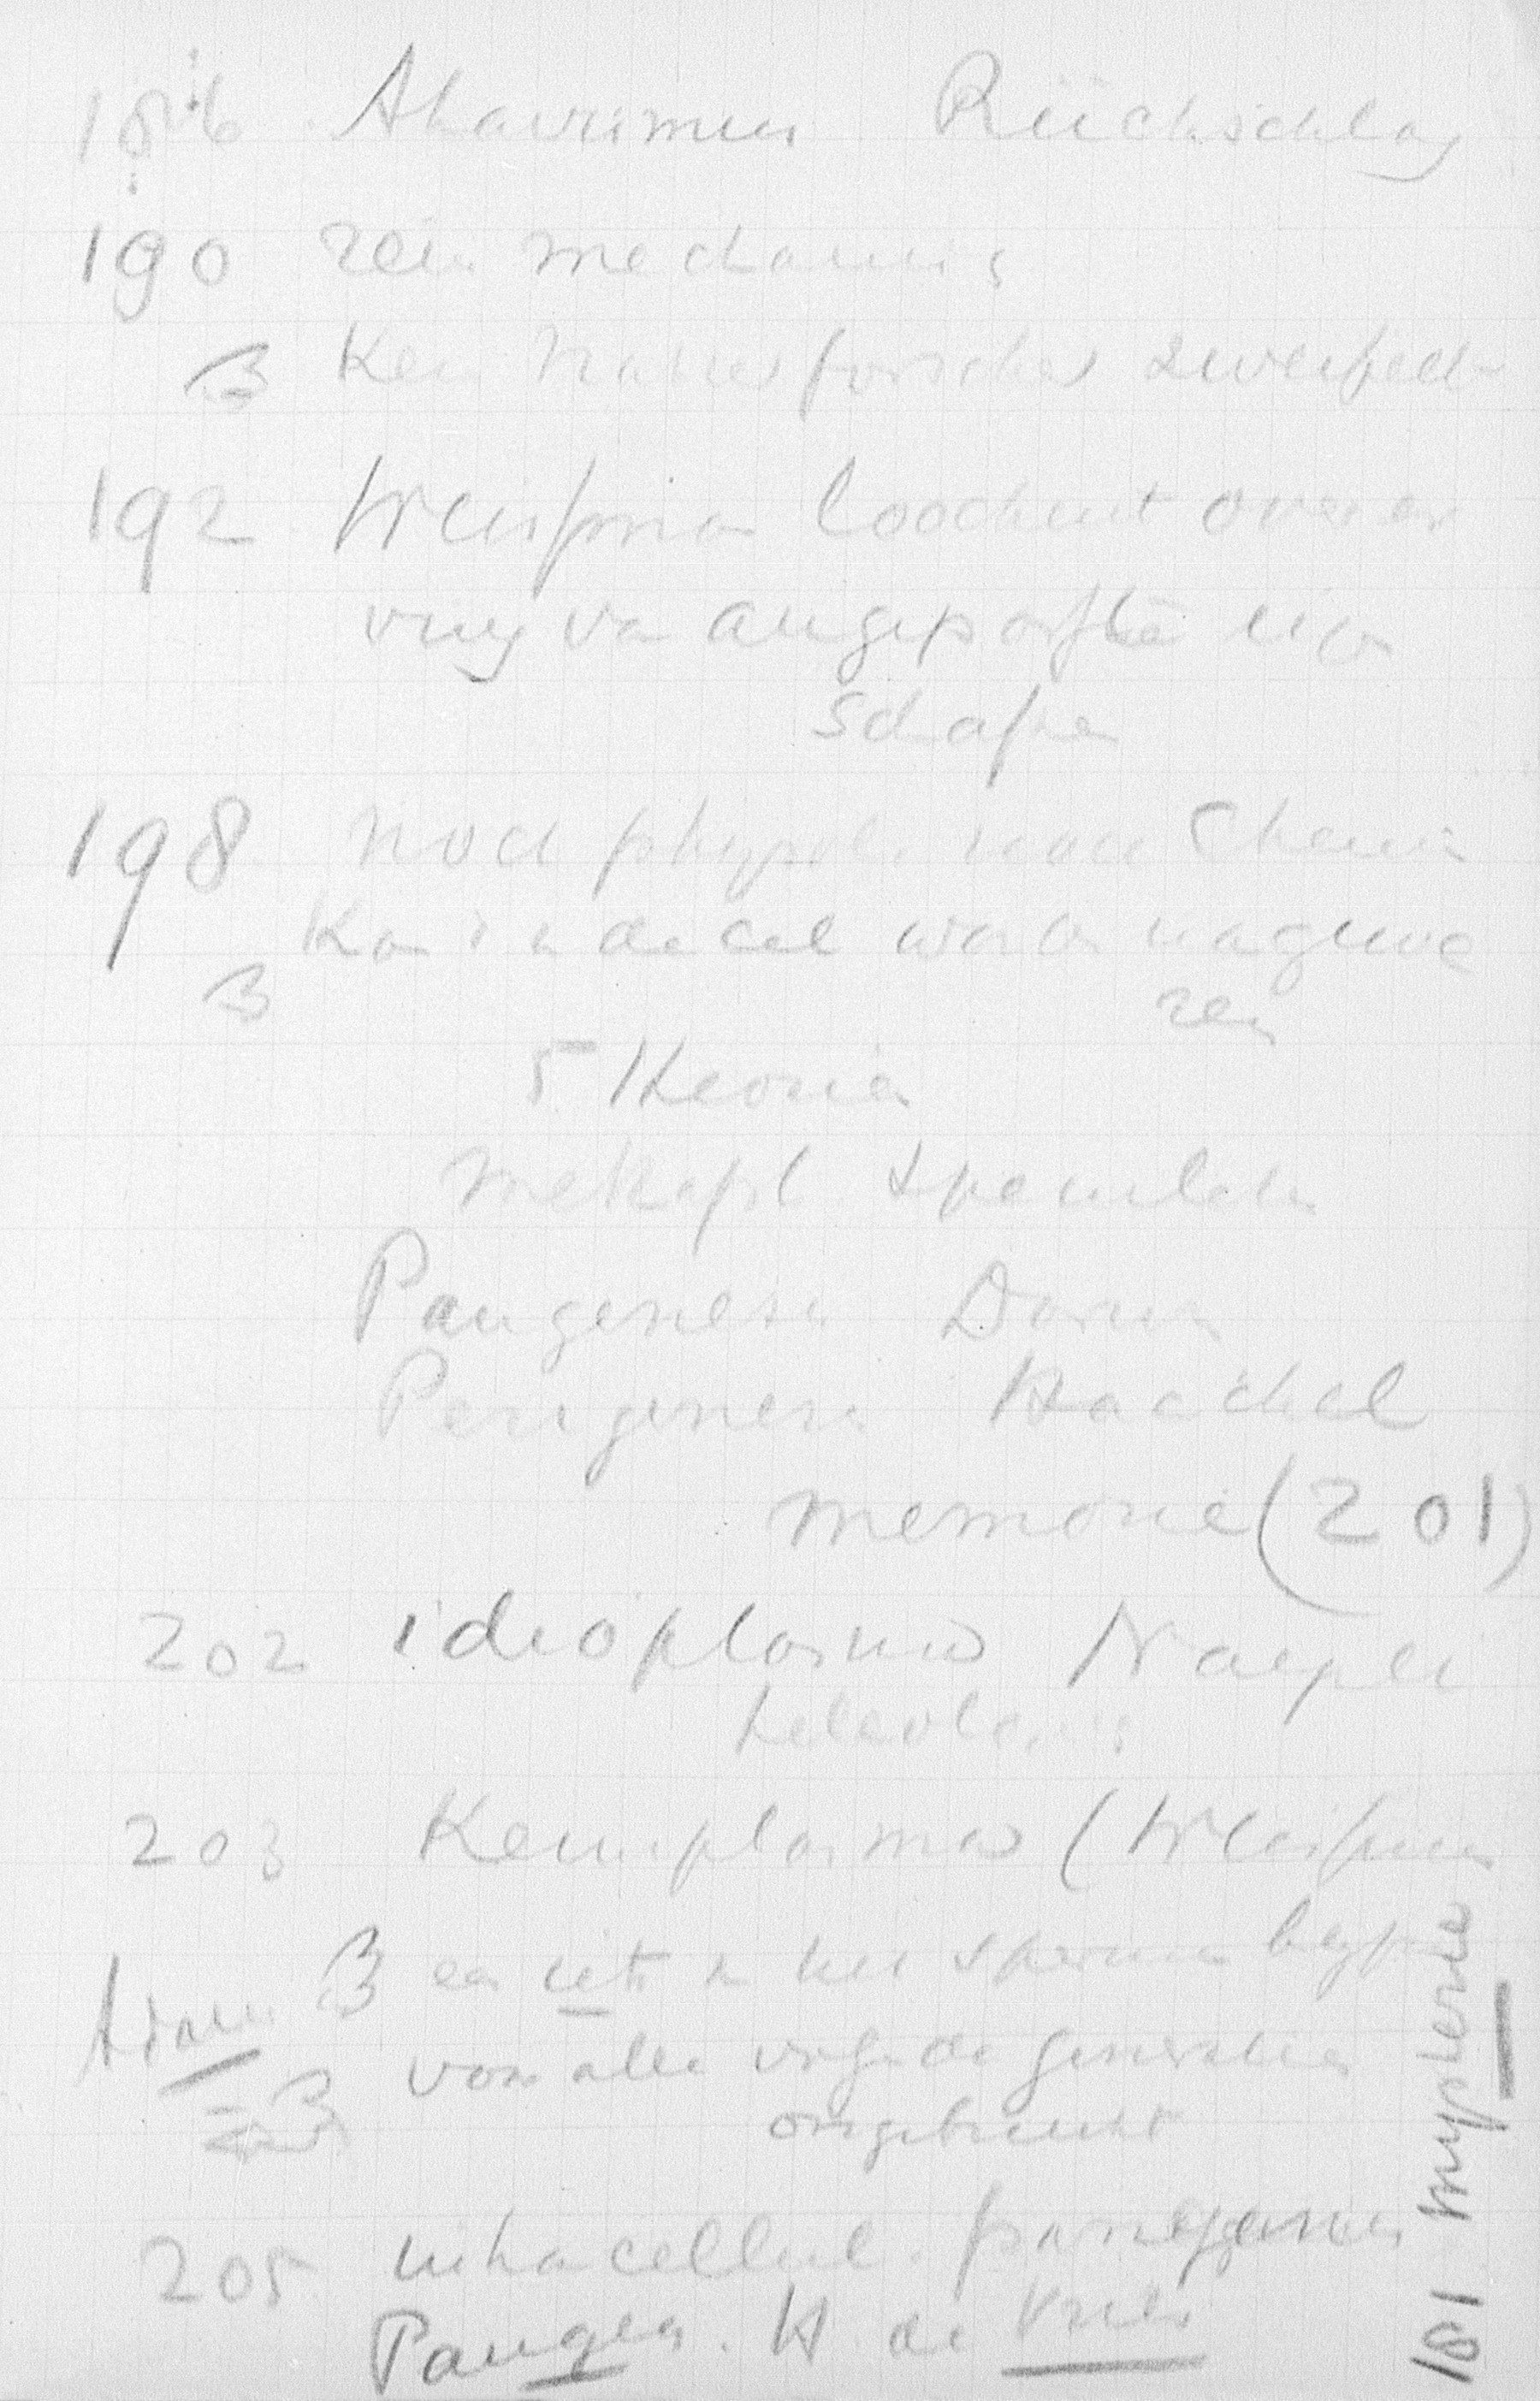 186 Atavismus Rückschlag
190 rein mechanis
B Kein Naturforscher zweifelt
192 Weisman loochent over er
ving van angepaste eigen
schapen
198 Noch physisch noch Chemis
Kan in de cel worden nagewe
B zen
5 Theorien
Metaph. speculatie
Pangenesis Darwin
Perigenesis Haeckel
memorie (201)
202 idioplasma Naegeli
teleologis
203 Kiemplasma (Weisman
Adam B en iets in het sperma
B van alle generaties
205 intracellul. pangenesis
Pangen. H. de Vries
181 mysterie